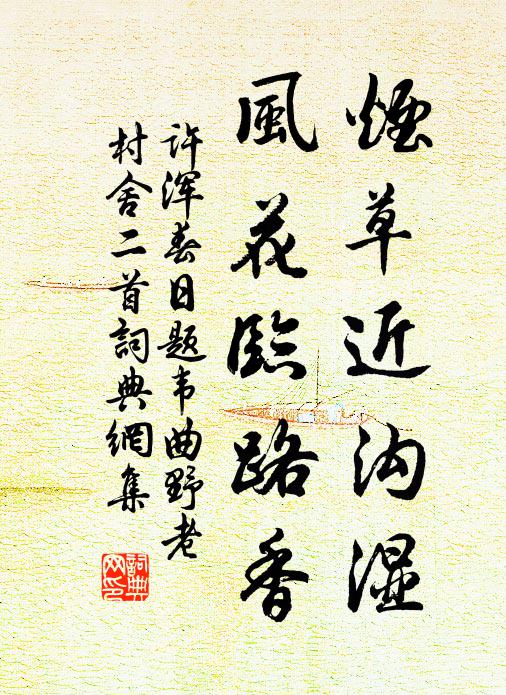 煙草近沟湿
風花臨路香
许浑春日题韦曲野老
村舍二首詞典網集
詞典
网印